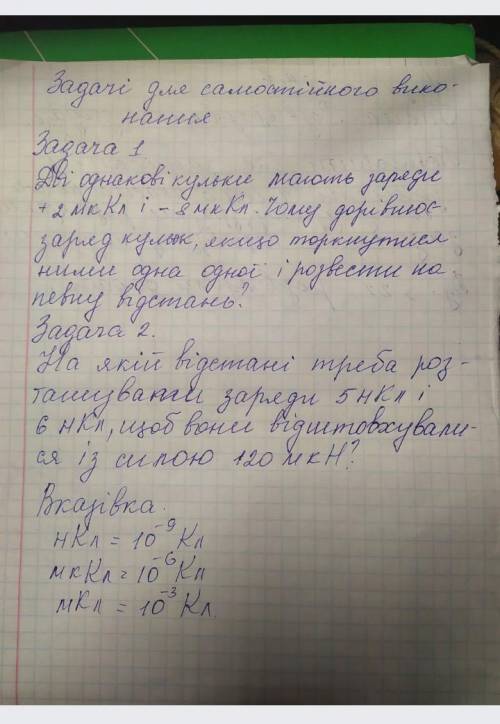 Задачі для самостійного вико-
нання
Задача 1
Дві однакові кульки мають заряди
+2мкКл і -8мкКл. Чому дорівнює
заряд кульок, якщо торкнутися
ними одна одної і розвести на
певну відстань?
Задача 2.
На якій відстані треба роз-
ташувати заряди 5нКл і
6 нКл, щоб вони відштовхували-
ся із силою 120 мкН?
Вказівка.
нКл = 10⁻⁹ Кл
мкКл = 10⁻⁶ Кл
мКл = 10⁻³ Кл.